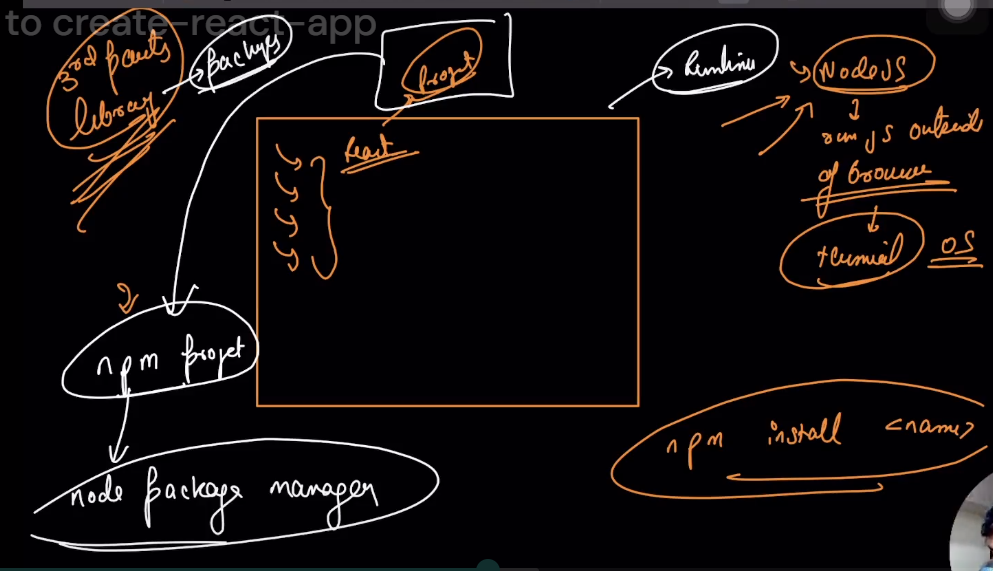 to create-react-app
3rd party
library
Packages
Project
Runtime
NodeJS
run JS outside
of browser
terminal
OS
React
npm project
node package manager
npm install <name>